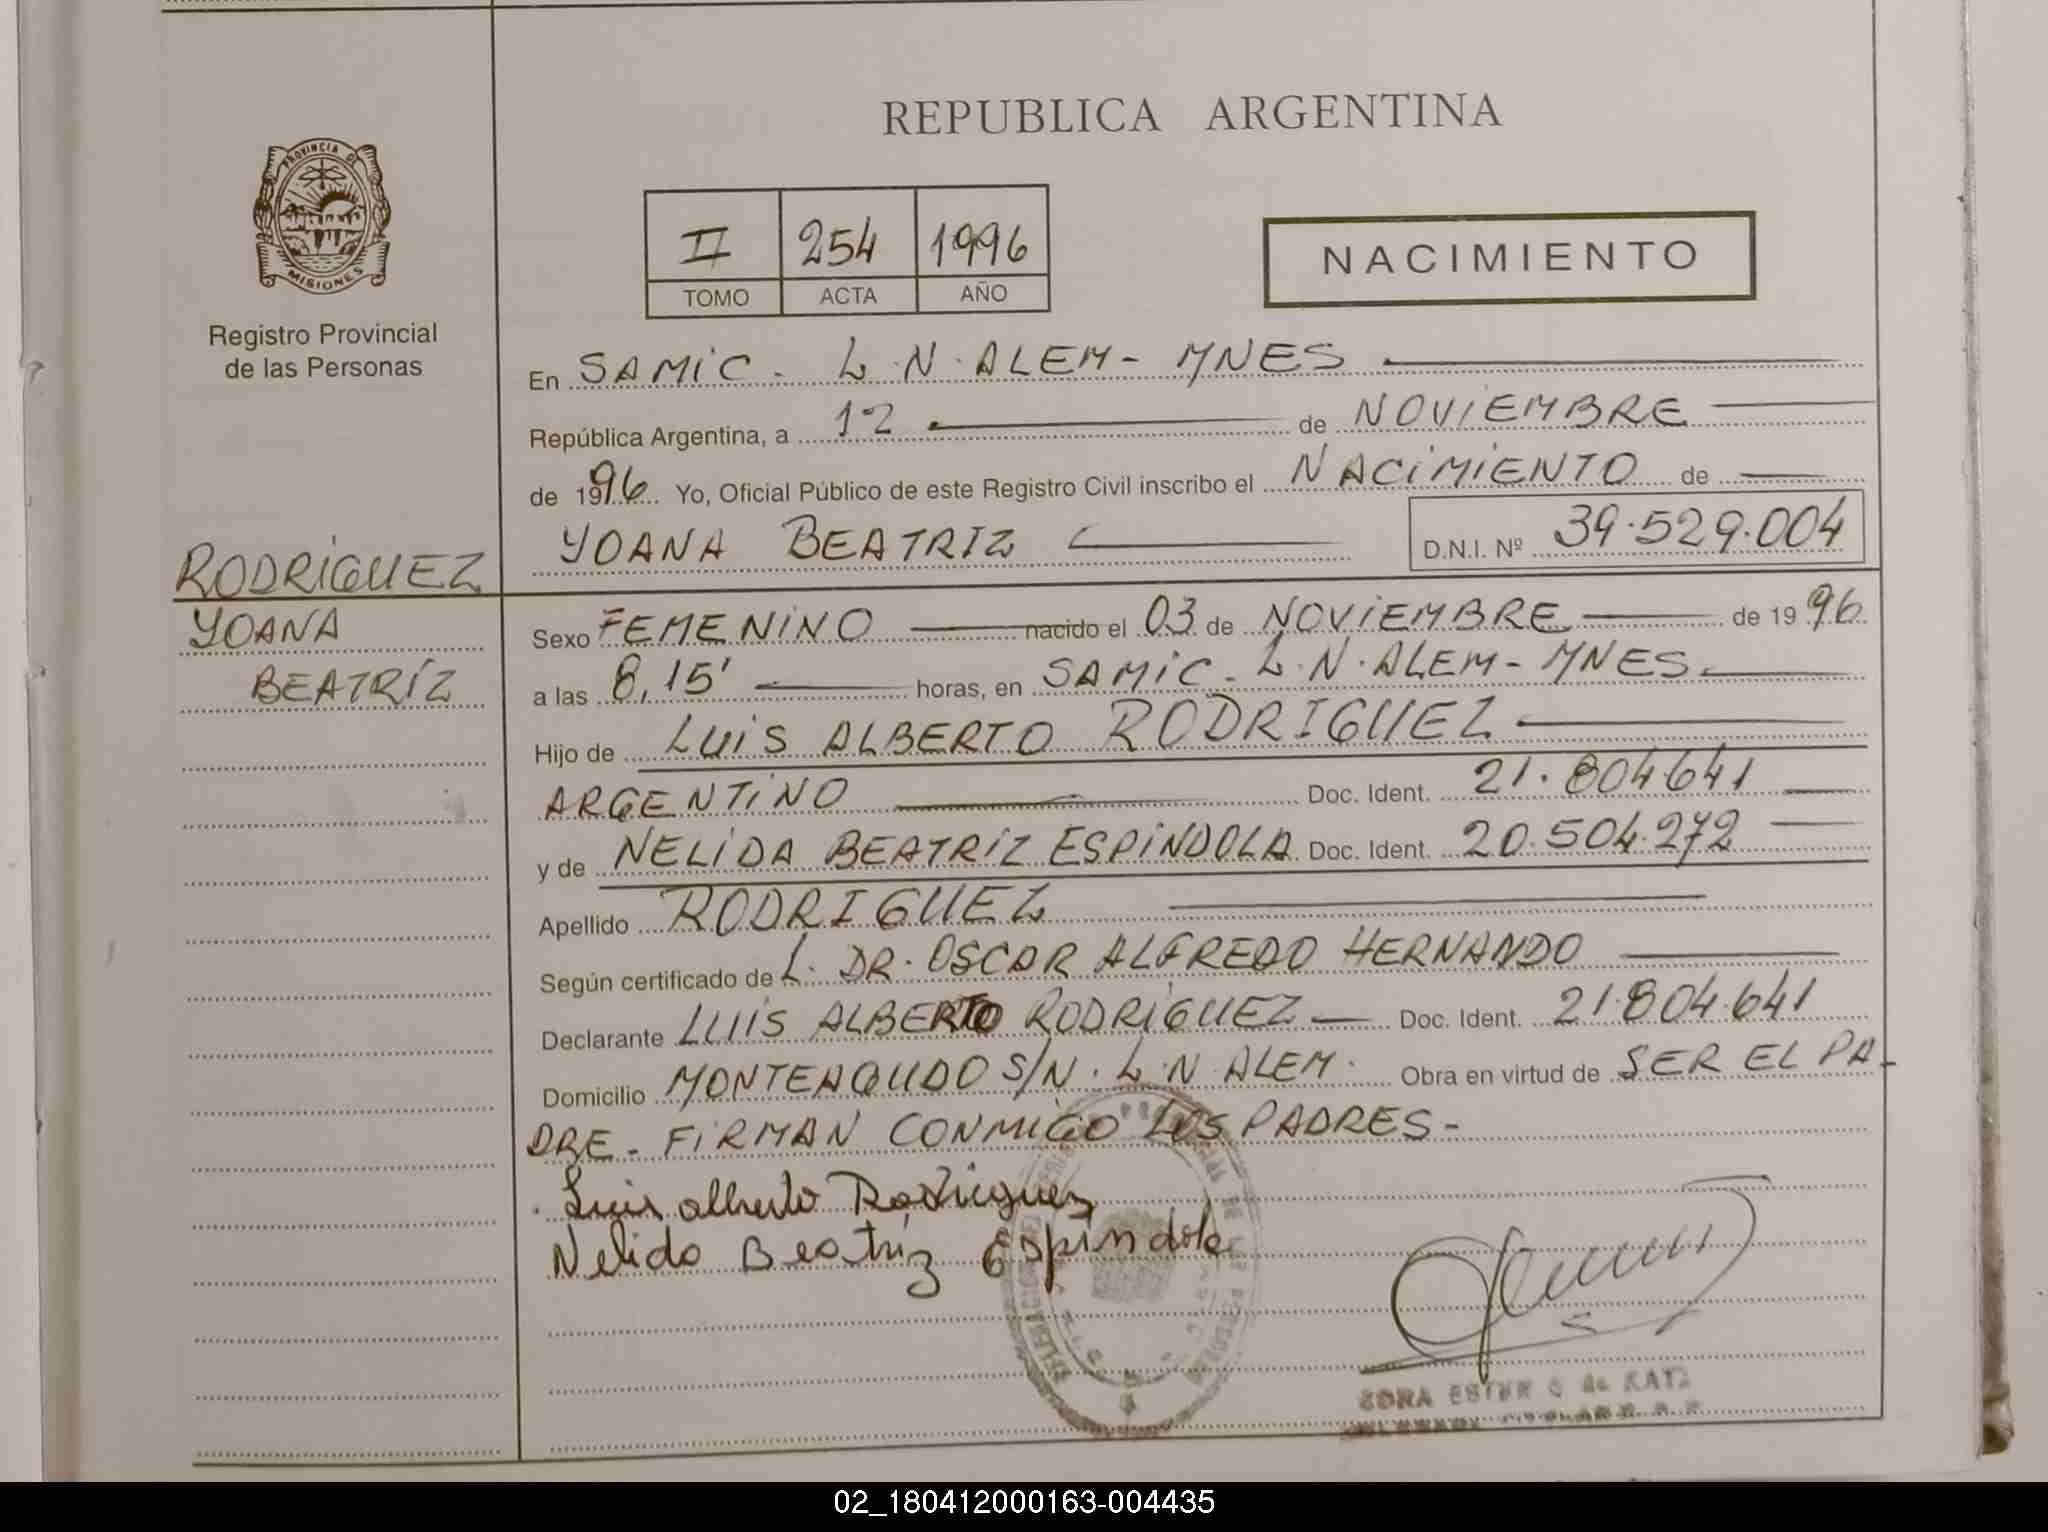 REPUBLICA ARGENTINA
PROVINCIA DE
MISIONES
Registro Provincial
de las Personas
II 254 1996
TOMO ACTA AÑO
NACIMIENTO
En SAMIC - L.N. ALEM - MNES
República Argentina, a 12 de NOVIEMBRE
de 1996 Yo, Oficial Público de este Registro Civil inscribo el NACIMIENTO de
YOANA BEATRIZ D.N.I. Nº 39.529.004
RODRIGUEZ
YOANA
BEATRIZ
Sexo FEMENINO nacido el 03 de NOVIEMBRE de 1996
a las 8,15' horas, en SAMIC - L.N. ALEM - MNES
Hijo de LUIS ALBERTO RODRIGUEZ
ARGENTINO Doc. Ident. 21.804.641
y de NELIDA BEATRIZ ESPINDOLA Doc. Ident. 20.504.272
Apellido RODRIGUEZ
Según certificado de L. DR. OSCAR ALFREDO HERNANDO
Declarante LUIS ALBERTO RODRIGUEZ Doc. Ident. 21.804.641
Domicilio MONTEAGUDO S/N. L.N. ALEM. Obra en virtud de SER EL PA-
DRE - FIRMAN CONMIGO LOS PADRES -
Luis alberto Rodriguez
Nelida Beatriz Espindola
de KATZ
02_180412000163-004435